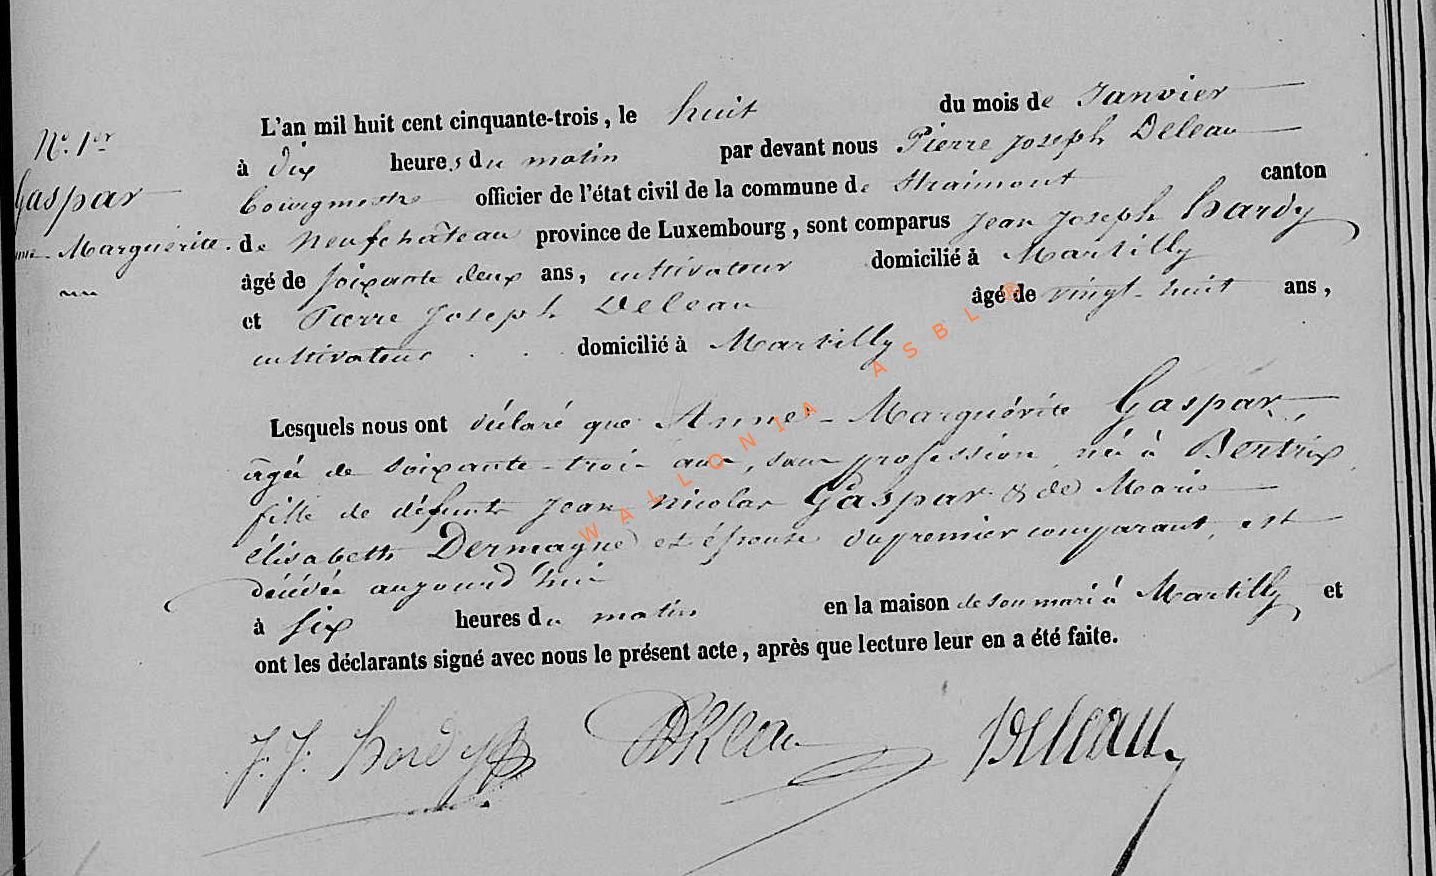 N.º 1er
Gaspar
Marguérite.
L'an mil huit cent cinquante-trois, le huit du mois de Janvier
à dix heures du matin par devant nous Pierre Joseph Deleau
bourgmestre officier de l'état civil de la commune de Straimont canton
de neufchâteau province de Luxembourg, sont comparus Jean Joseph hardy
âgé de soixante deux ans, cultivateur domicilié à Martilly
et Pierre Joseph Deleau âgé de vingt-huit ans,
cultivateur domicilié à Martilly
Lesquels nous ont déclaré que Anne-Marguérite Gaspar,
âgée de soixante-trois ans, sans profession, née à Bertrix,
fille de défunts Jean Nicolas Gaspar & de Marie
élisabeth Dermagne et épouse du premier comparant, est
décédée aujourd'hui
à six heures du matin en la maison de son mari à Martilly, et
ont les déclarants signé avec nous le présent acte, après que lecture leur en a été faite.
J. J. hardy Deleau Deleau
WALLONIA ASBL ®